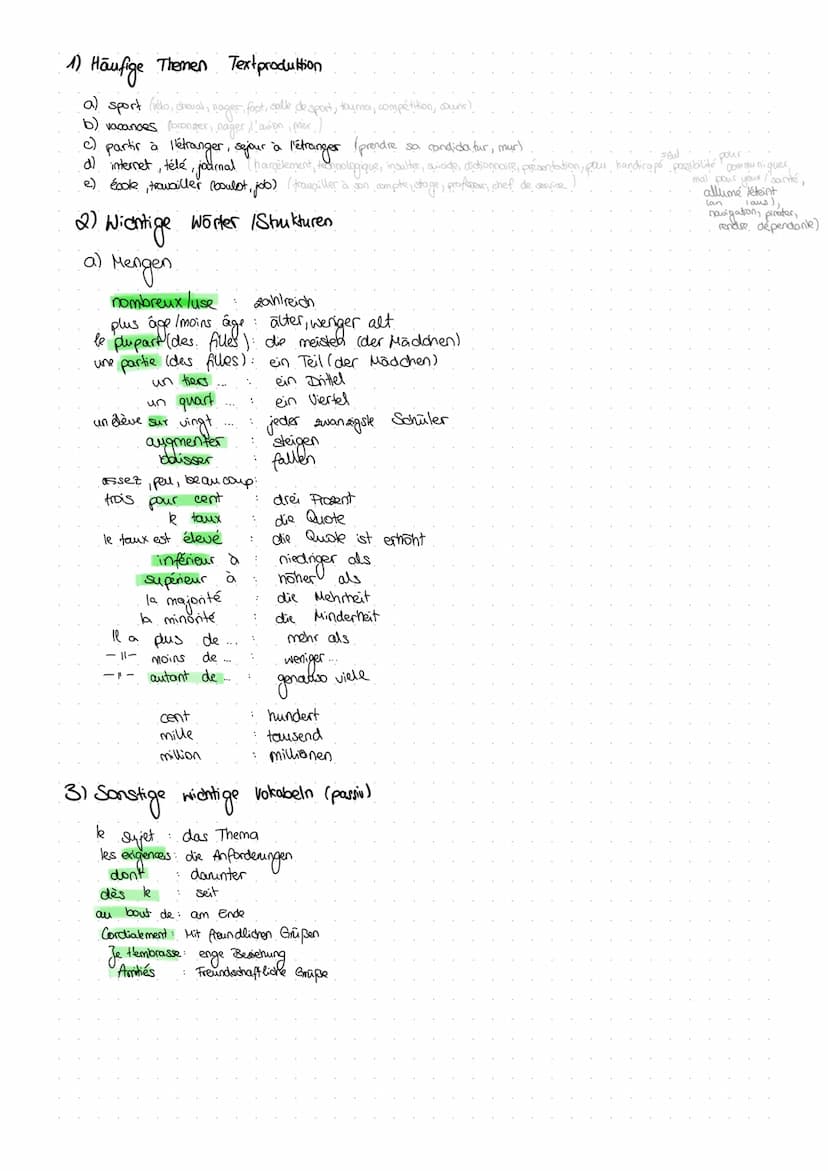 1) Häufige Themen Textproduktion
a) sport (vélo, cheval, nager, foot, salle de sport, tournoi, compétition, courir)
b) vacances (bronzer, nager, l'avion, mer)
c) partir à l'étranger, sejour à l'étranger (prendre sa candidatur, mur)
d) internet, télé, journal (harcèlement, technologique, insulter, suicide, dictionnaire, présentation, pour handicapé, possibilité pour communiquer,
mal pour yeux / santé,
allumé / éteint
(an / aus),
navigation, pirater,
rendre dépendante)
e) école, travailler (boulot, job) (travailler à son compte, stage, professeur, chef de service)
2) Wichtige Wörter / Strukturen
a) Mengen
nombreux / use : zahlreich
plus âge / moins âge : älter, weniger alt
le plupart (des filles) : die meisten (der Mädchen)
une partie (des filles) : ein Teil (der Mädchen)
un tiers ... : ein Drittel
un quart ... : ein Viertel
un élève sur vingt ... : jeder zwanzigste Schüler
augmenter : steigen
baisser : fallen
assez, peu, beaucoup:
trois pour cent : drei Prozent
le taux : die Quote
le taux est élevé : die Quote ist erhöht
inférieur à : niedriger als
supérieur à : höher als
la majorité : die Mehrheit
la minorité : die Minderheit
Il a plus de ... : mehr als
-"- moins de ... : weniger ...
-"- autant de ... : genauso viele
cent : hundert
mille : tausend
million : millionen
3) Sonstige wichtige Vokabeln (passiv)
le sujet : das Thema
les exigences : die Anforderungen
dont : darunter
dès le : seit
au bout de : am Ende
Cordialement : Mit freundlichen Grüßen
Je t'embrasse : enge Beziehung
Amitiés : Freundschaftliche Grüße